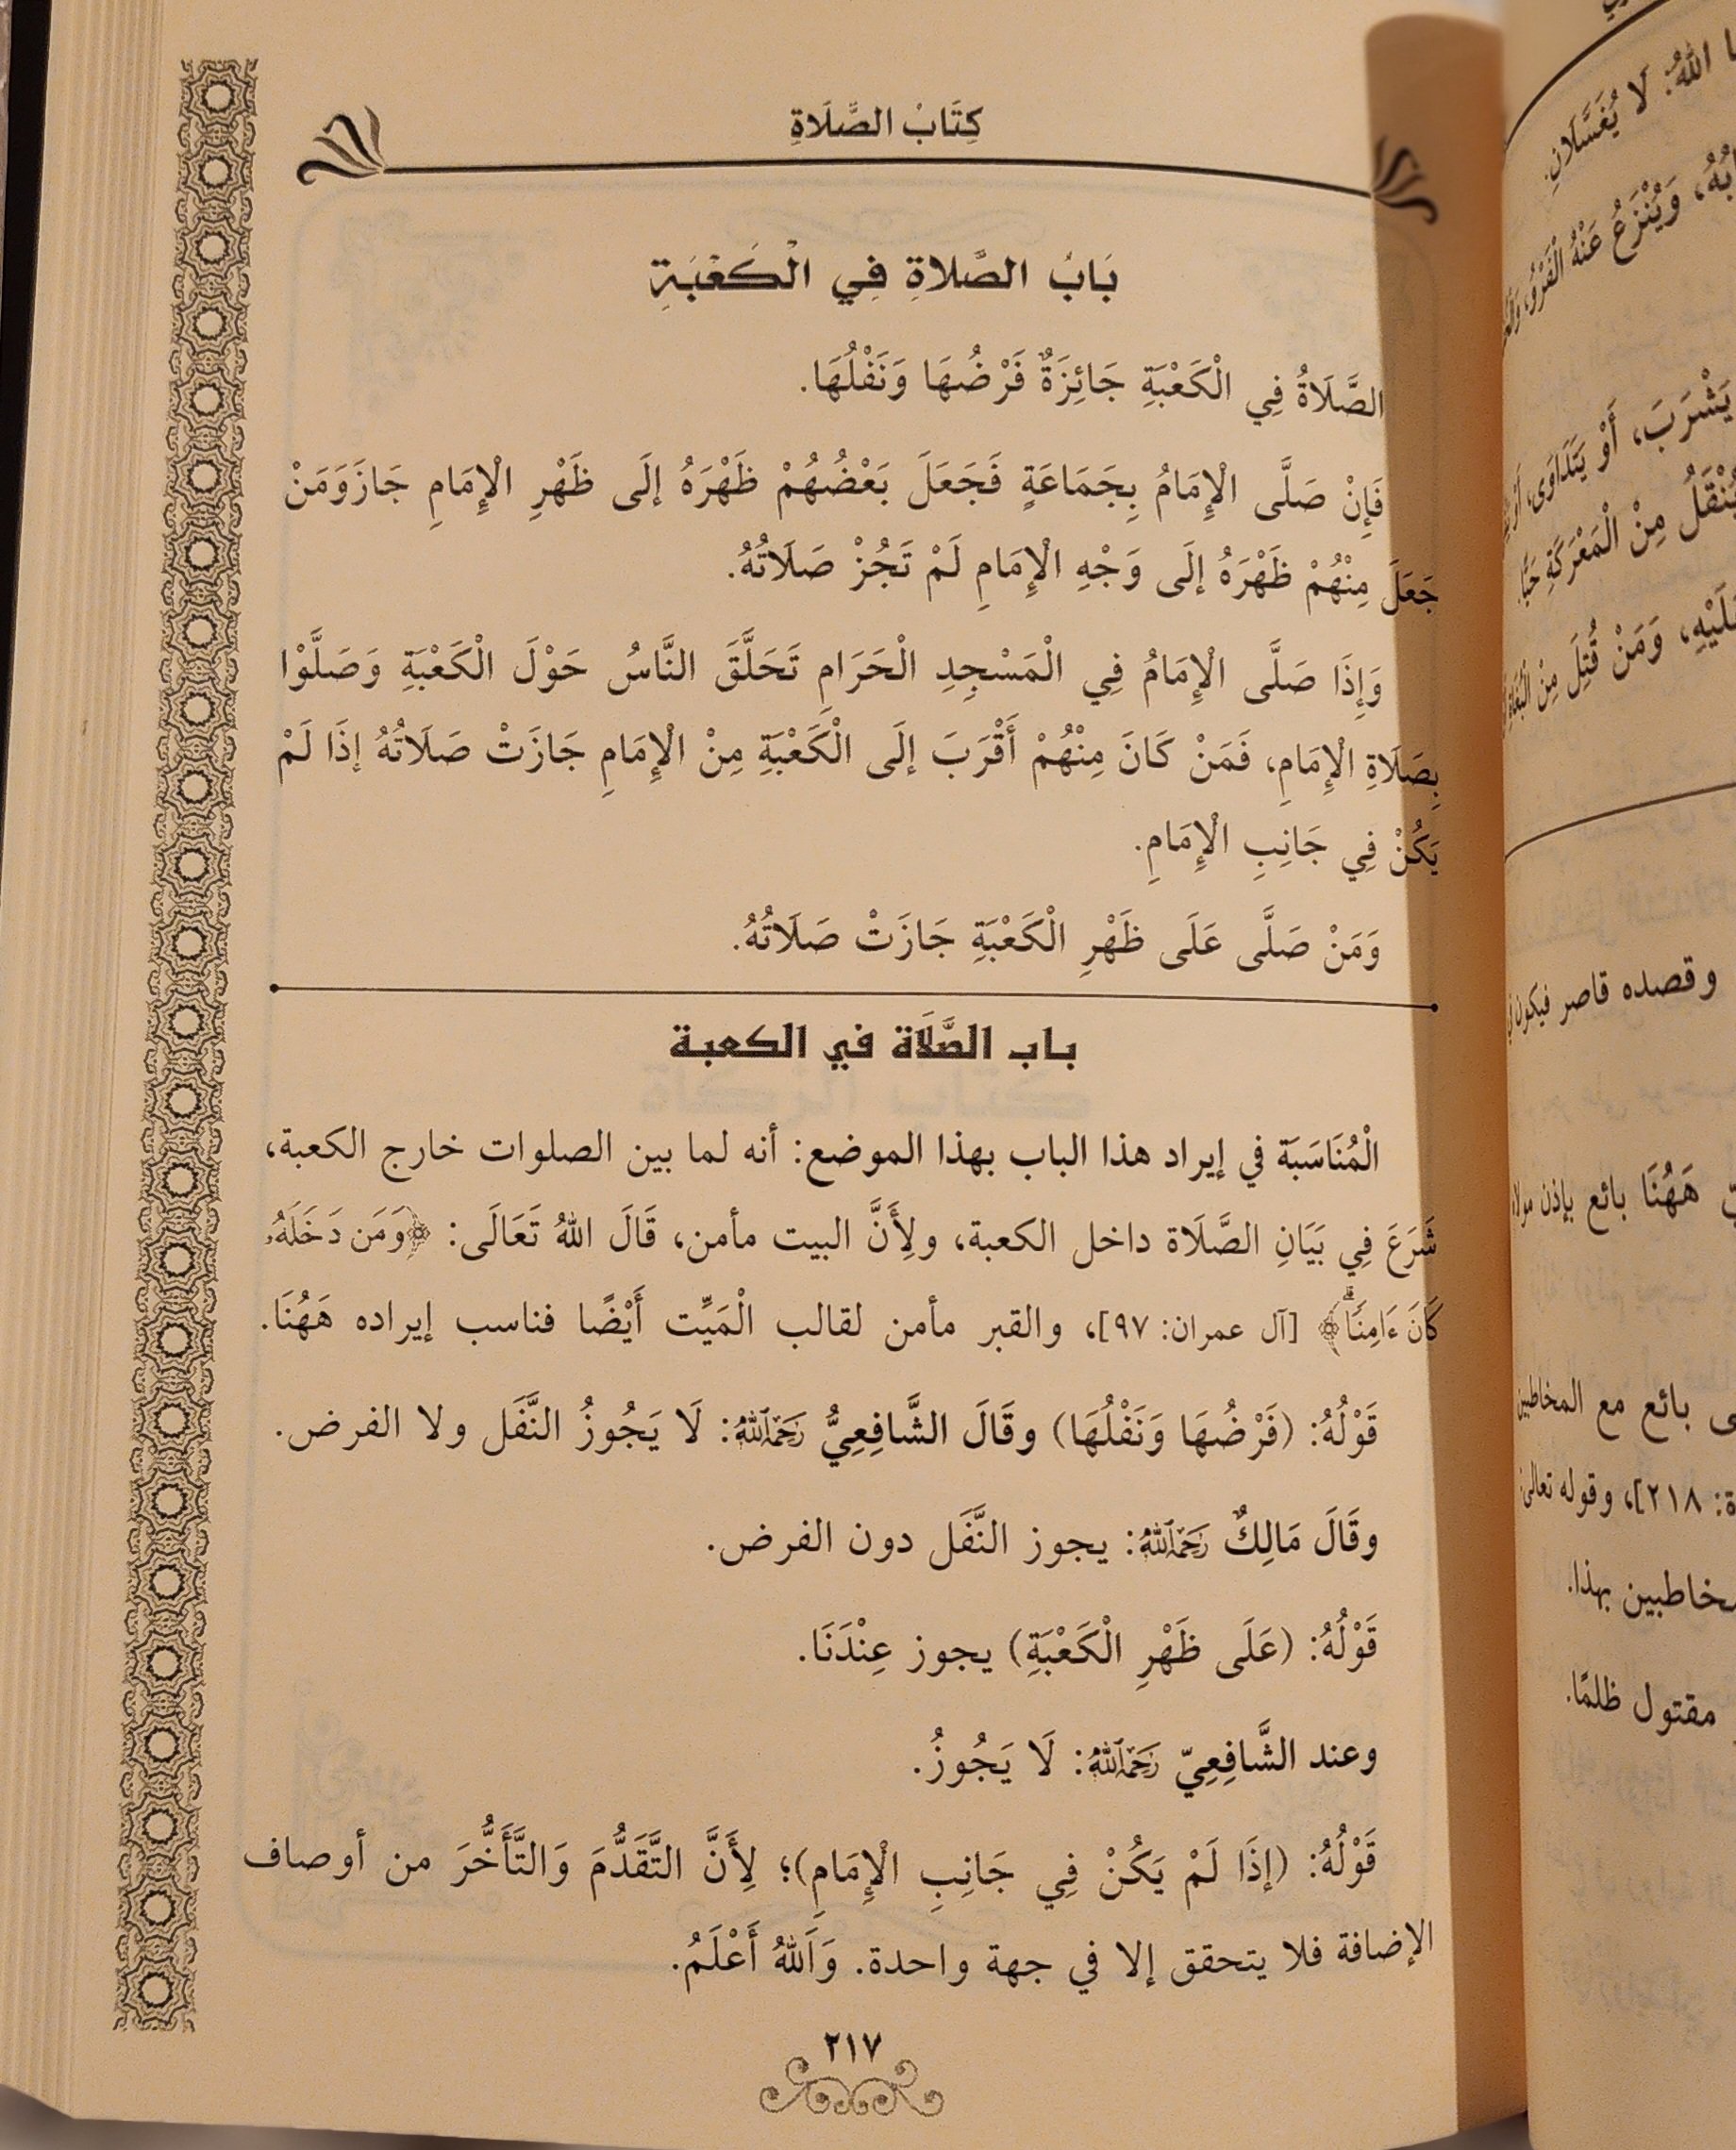 كِتَابُ الصَّلَاةِ
بَابُ الصَّلاةِ فِي الْكَعْبَةِ
الصَّلَاةُ فِي الْكَعْبَةِ جَائِزَةٌ فَرْضُهَا وَنَفْلُهَا.
فَإِنْ صَلَّى الْإِمَامُ بِجَمَاعَةٍ فَجَعَلَ بَعْضُهُمْ ظَهْرَهُ إلَى ظَهْرِ الْإِمَامِ جَازَوَمَنْ
جَعَلَ مِنْهُمْ ظَهْرَهُ إلَى وَجْهِ الْإِمَامِ لَمْ تَجُزْ صَلَاتُهُ.
وَإِذَا صَلَّى الْإِمَامُ فِي الْمَسْجِدِ الْحَرَامِ تَحَلَّقَ النَّاسُ حَوْلَ الْكَعْبَةِ وَصَلَّوْا
بِصَلَاةِ الْإِمَامِ، فَمَنْ كَانَ مِنْهُمْ أَقْرَبَ إلَى الْكَعْبَةِ مِنْ الْإِمَامِ جَازَتْ صَلَاتُهُ إذَا لَمْ
يَكُنْ فِي جَانِبِ الْإِمَامِ.
وَمَنْ صَلَّى عَلَى ظَهْرِ الْكَعْبَةِ جَازَتْ صَلَاتُهُ.
باب الصَّلَاة في الكعبة
الْمُنَاسَبَة في إيراد هذا الباب بهذا الموضع: أنه لما بين الصلوات خارج الكعبة،
شَرَعَ فِي بَيَانِ الصَّلَاة داخل الكعبة، ولِأَنَّ البيت مأمن، قَالَ اللهُ تَعَالَى: ﴿وَمَن دَخَلَهُۥ
كَانَ ءَامِنٗاۗ﴾ [آل عمران: ٩٧]، والقبر مأمن لقالب الْمَيِّت أَيْضًا فناسب إيراده هَهُنَا.
قَوْلُهُ: (فَرْضُهَا وَنَفْلُهَا) وقَالَ الشَّافِعِيُّ رَحِمَهُ ٱللَّهُ: لَا يَجُوزُ النَّفَل ولا الفرض.
وقَالَ مَالِكٌ رَحِمَهُ ٱللَّهُ: يجوز النَّفَل دون الفرض.
قَوْلُهُ: (عَلَى ظَهْرِ الْكَعْبَةِ) يجوز عِنْدَنَا.
وعند الشَّافِعِيّ رَحِمَهُ ٱللَّهُ: لَا يَجُوزُ.
قَوْلُهُ: (إذَا لَمْ يَكُنْ فِي جَانِبِ الْإِمَامِ)؛ لِأَنَّ التَّقَدُّمَ وَالتَّأَخُّرَ من أوصاف
الإضافة فلا يتحقق إلا في جهة واحدة. وَاَللهُ أَعْلَمُ.
٢١٧
اللهُ: لَا يُغَسَّلَانِ.
وَيُنْزَعُ عَنْهُ الْفَرْوُ،
يَشْرَبَ، أَوْ يَتَدَاوَى،
مِنْ الْمَعْرَكَةِ حَيًّا.
وَمَنْ قُتِلَ مِنْ
وقصده قاصر فيكون
هَهُنَا بائع بإذن
بائع مع المخاطبين
٢١٨]، وقوله تعالى:
بهذا.
مقتول ظلمًا.